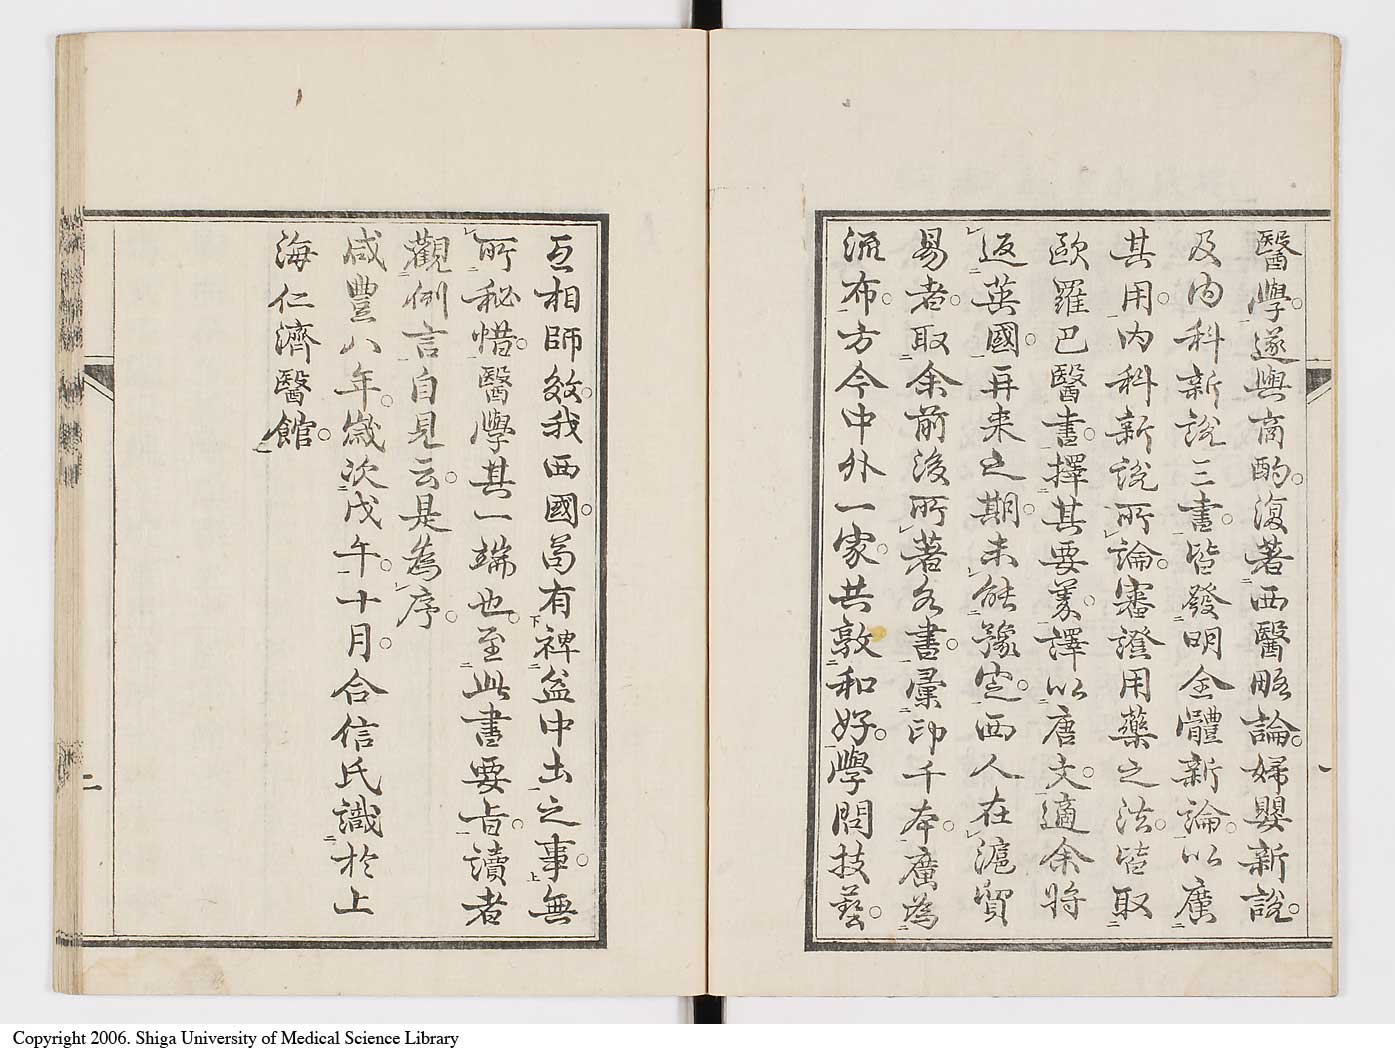 醫學。遂與商酌。復著西醫略論。婦嬰新說。
及內科新說三書。皆發明全體新論。以廣
其用。內科新說所論。審證用藥之法。皆取
歐羅巴醫書。擇其要義。譯以唐文。適余將
返英國。再來之期。未能豫定。西人在滬貿
易者。取余前後所著各書。彙印千本。廣為
流布。方今中外一家。共敦和好。學問技藝。
互相師效。我西國。苟有裨益中土之事。無
所秘惜。醫學其一端也。至此書要旨。讀者
觀例言自見云。是為序。
咸豐八年。歲次戊午。十月。合信氏識於上
海仁濟醫館。
二
Copyright 2006. Shiga University of Medical Science Library